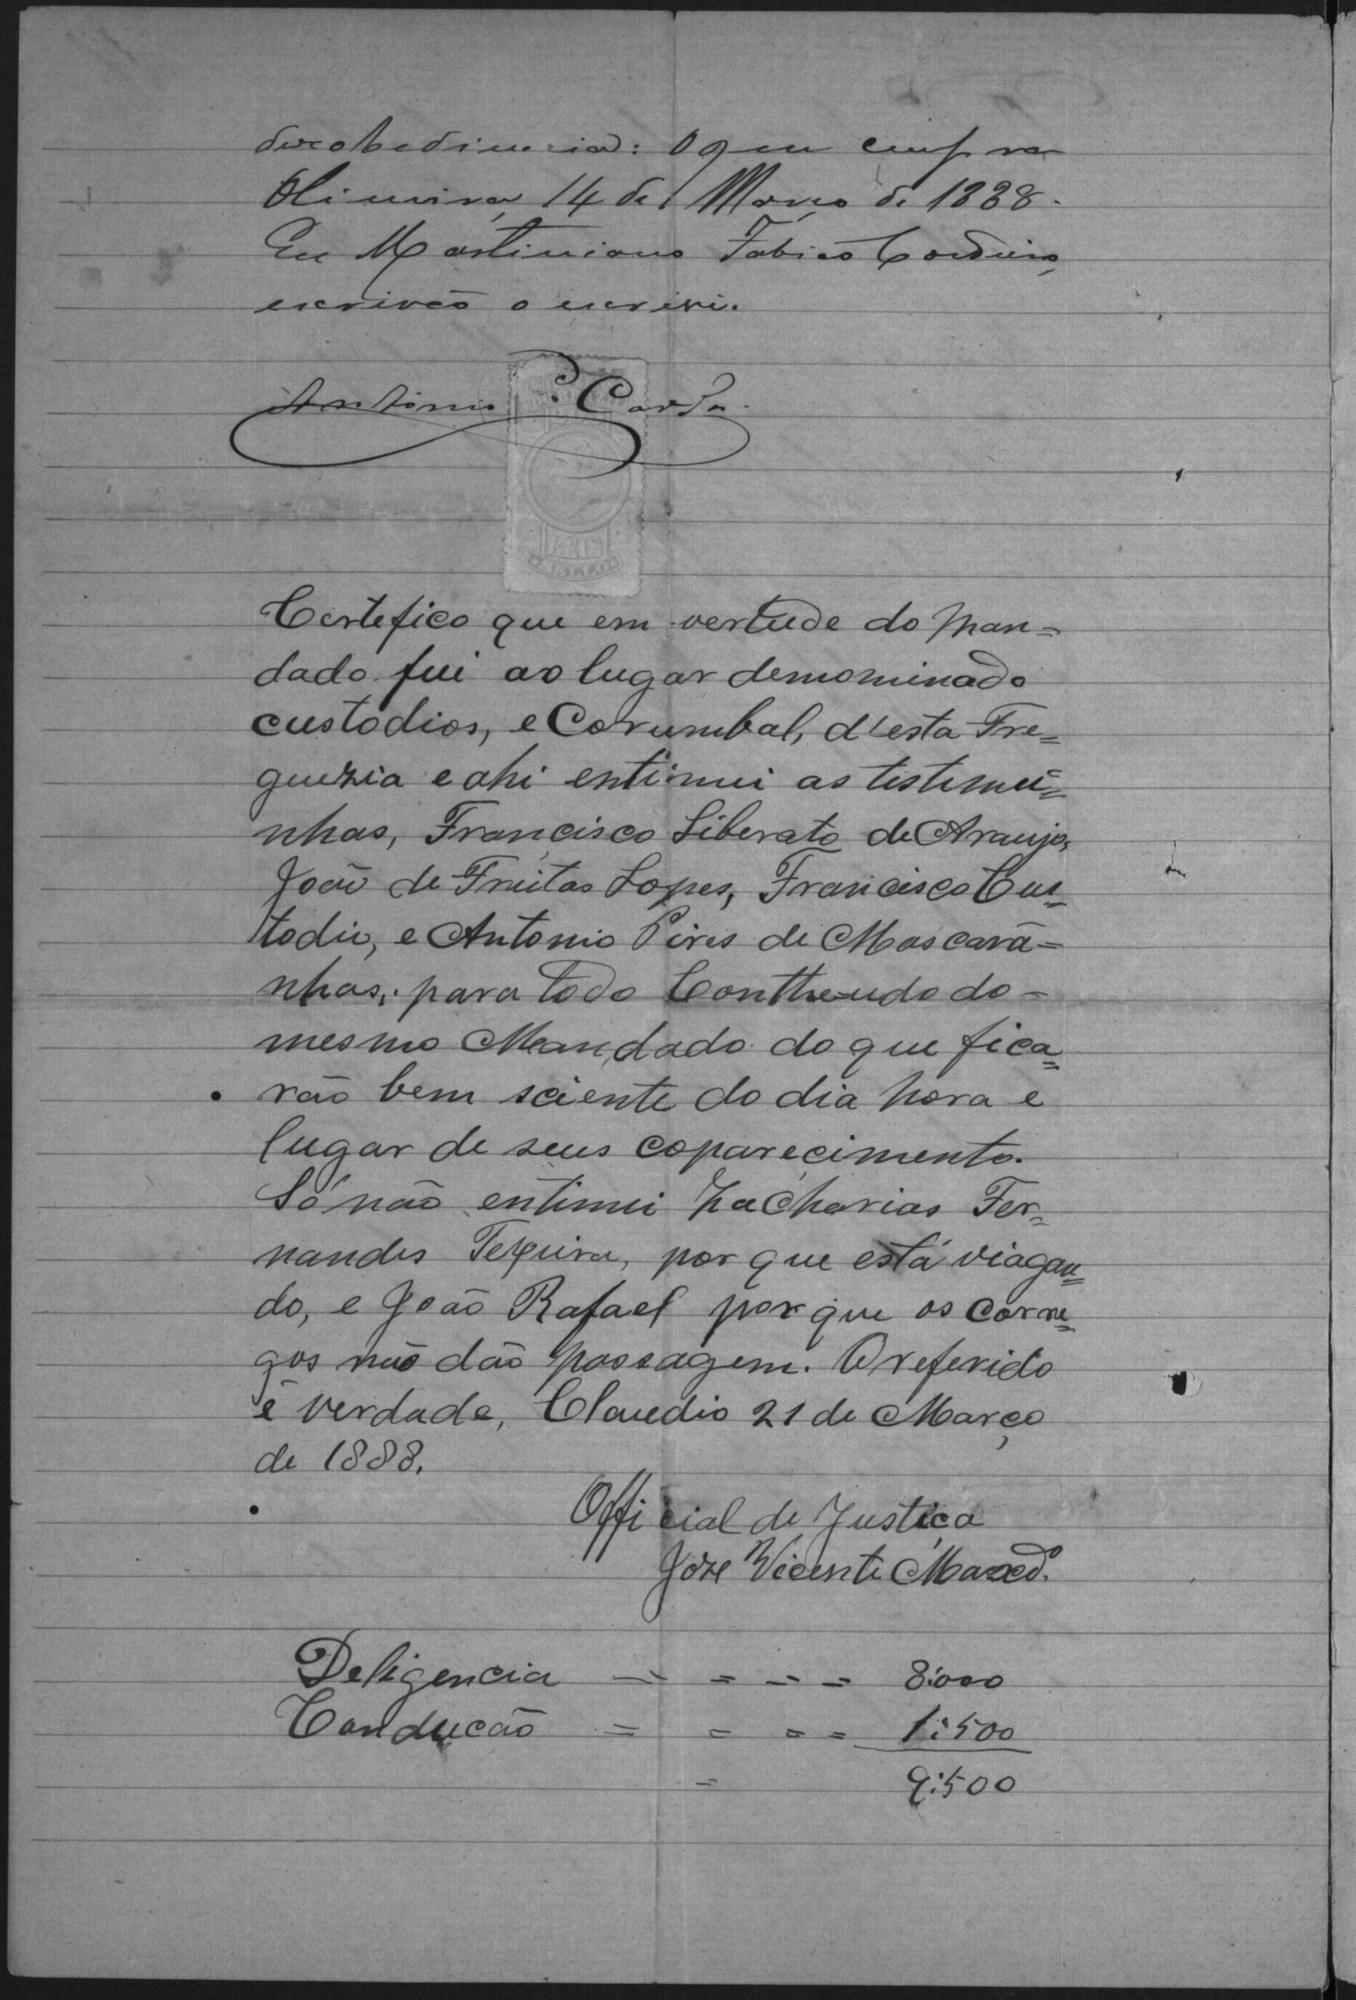 desobediencia: O que cumpra
Oliveira, 14 de Março de 1888.
Eu Martiniano Fabião Cordeiro,
escrivão o escrivi.
Antonio C. Corrêa
REIS
Certefico que em vertude do man=
dado fui ao lugar demominado
custodios, e Corumbal, d'esta Fre=
guezia e ahi entimei as testemu=
nhas, Francisco Liberato de Araujo,
João de Freitas Lopes, Francisco Cus=
todio, e Antonio Pires de Mascarã=
nhas, para todo Contheudo do-
mesmo Mandado do que fica=
rão bem sciente do dia hora e
lugar de seus coparecimento.
Só não entimei Zacharias Fer=
nandes Texeira, por que está viagan=
do, e João Rafael por que os corre=
gos não dão passagem. O referido
é verdade, Claudio 21 de Março
de 1888.
Official de Justiça
Joze Vicente Maced.º
Deligencia - = - = 8:000
Condução = = = = 1:500
= 9:500